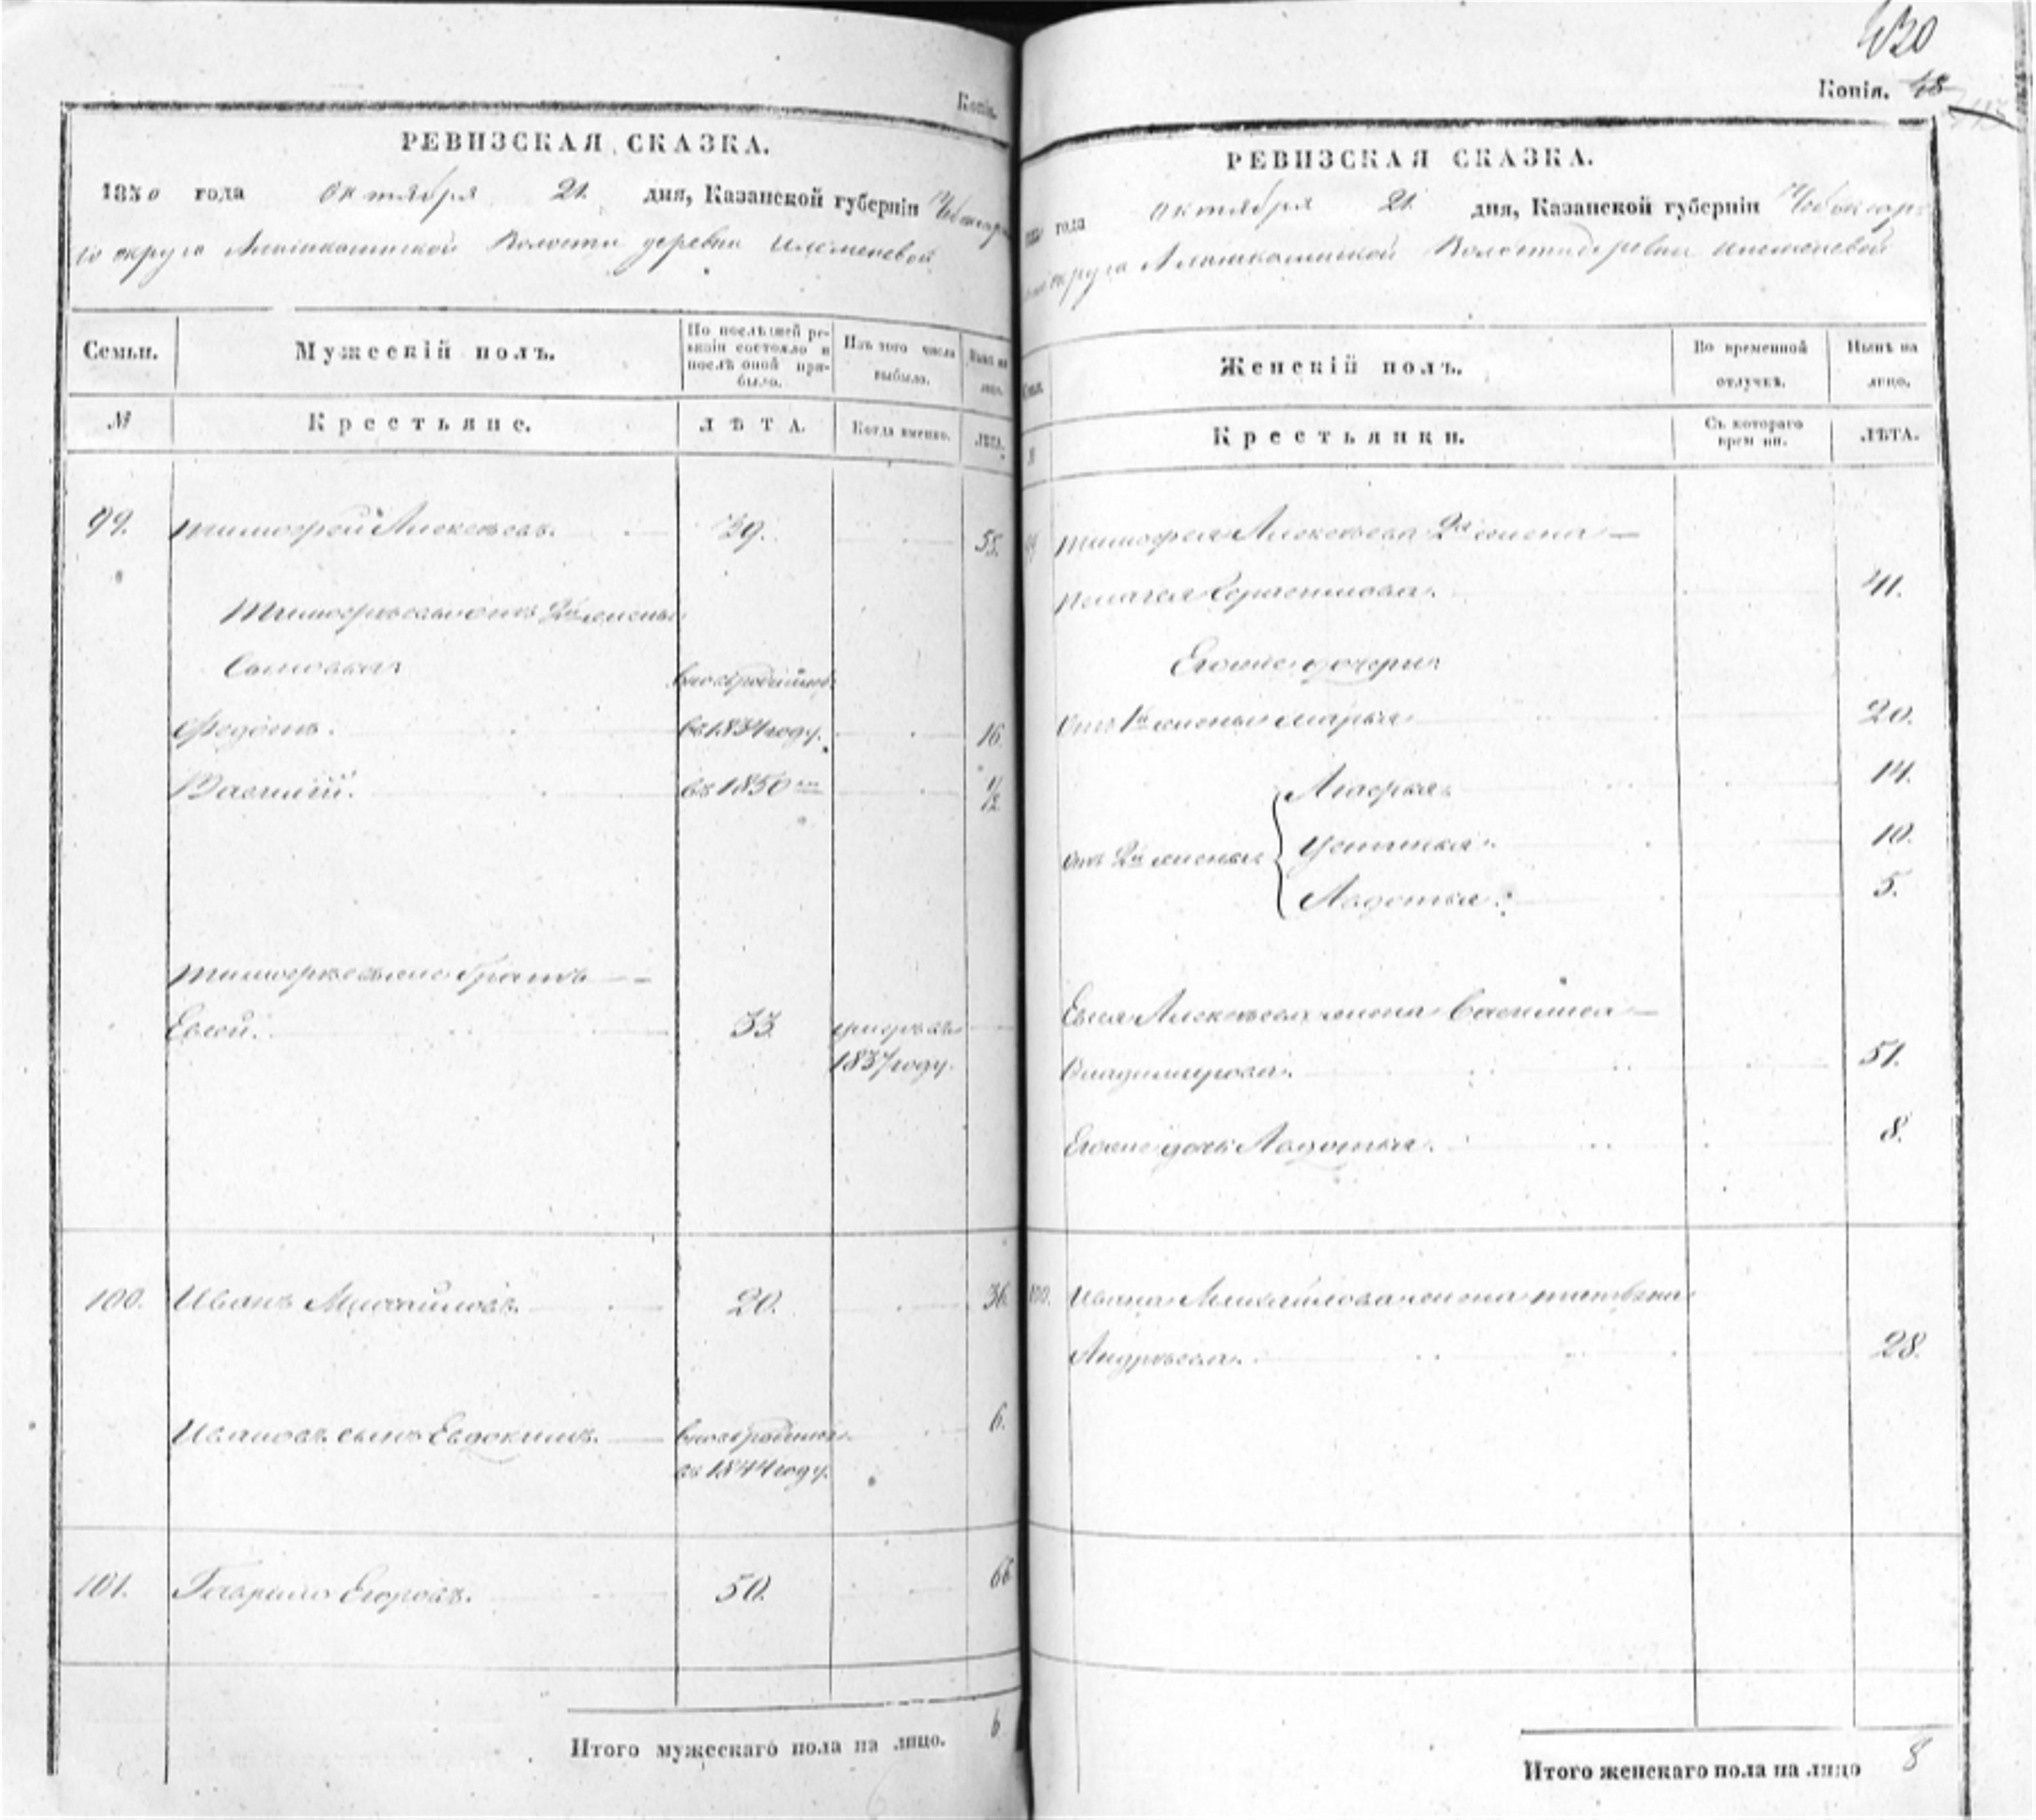 Копія.
РЕВИЗСКАЯ СКАЗКА.
1850 года Октября 21. дня, Казанской губерніи Чебоксар
го округа Волости деревни
Семьи. Мужескій полъ. По послѣдней ревизіи состояло и послѣ оной прибыло. Изъ того числа выбыло. Нынѣ на лицо.
№ Крестьяне. ЛѢТА. Когда именно. ЛѢТА.
99. Тимофей Алексѣевъ. 39. 55.
Тимофѣевы отъ 2й жены
Сыновья вновьрожденный
Федотъ. въ 1834 году. 16.
Василий. въ 1850 м 1/12
Тимофѣевъ братъ
Евсей. 33. умеръ въ
1837 году.
100. Иванъ Михайловъ. 20. 36.
Ивановъ сынъ Евдокимъ. вновьрожденный 6.
въ 1844 году.
101. Гаврило Егоровъ. 50. 66.
Итого мужескаго пола на лицо. 6
430
Копія. 48
РЕВИЗСКАЯ СКАЗКА.
года Октября 21. дня, Казанской губерніи Чебоксар
округа Волости деревни
Женскій полъ. Во временной отлучкѣ. Нынѣ на лицо.
№ Крестьянки. Съ котораго времени. ЛѢТА.
99 Тимофея Алексѣева 2я жена
Пелагея 41.
Егоже дочери
Отъ 1й жены Марья 20.
14.
отъ 2й жены Устинья. 10.
Авдотья. 5.
Евсея Алексѣева жена Василиса
Владимирова. 51.
Егоже дочь Авдотья. 8.
100. Ивана Михайлова жена Татьяна
Андрѣева. 28.
Итого женскаго пола на лицо 8